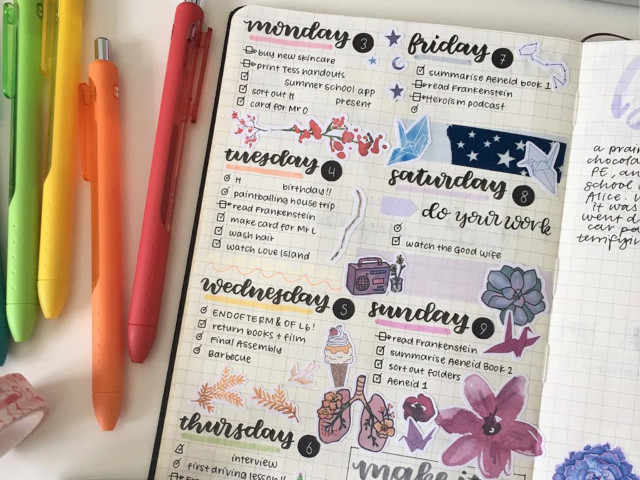 monday 3
buy new skincare
print Tess handouts
summer school app
sort out H present
card for Mr O
tuesday 4
H birthday!!
paintballing house trip
read Frankenstein
make card for Mr L
wash hair
watch Love Island
wednesday 5
END OF TERM & OF L6!
return books + film
Final Assembly
Barbecue
thursday 6
interview
first driving lesson!!
friday 7
summarise Aeneid book 1
read Frankenstein
Heroism podcast
saturday 8
do your work
watch the Good Wife
sunday 9
read Frankenstein
summarise Aeneid Book 2
sort out folders
Aeneid 1
make it
a
chocola
PE, an
school
Alice.
it was
went d
car pa
terrifyin